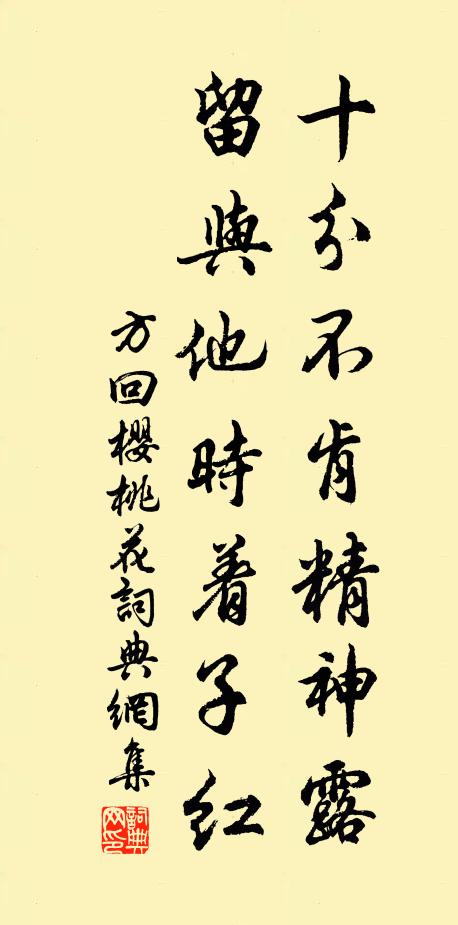 十分不肯精神露
留與他時着子紅
方回櫻桃花詞典網集
詞典網印